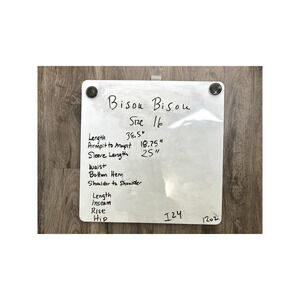 Bisou Bisou
Size 16
Length 38.5"
Armpit to Armpit 18.75"
Sleeve Length 25"
Waist
Bottom Hem
Shoulder to Shoulder
Length
Inseam
Rise
Hip
I24 1202